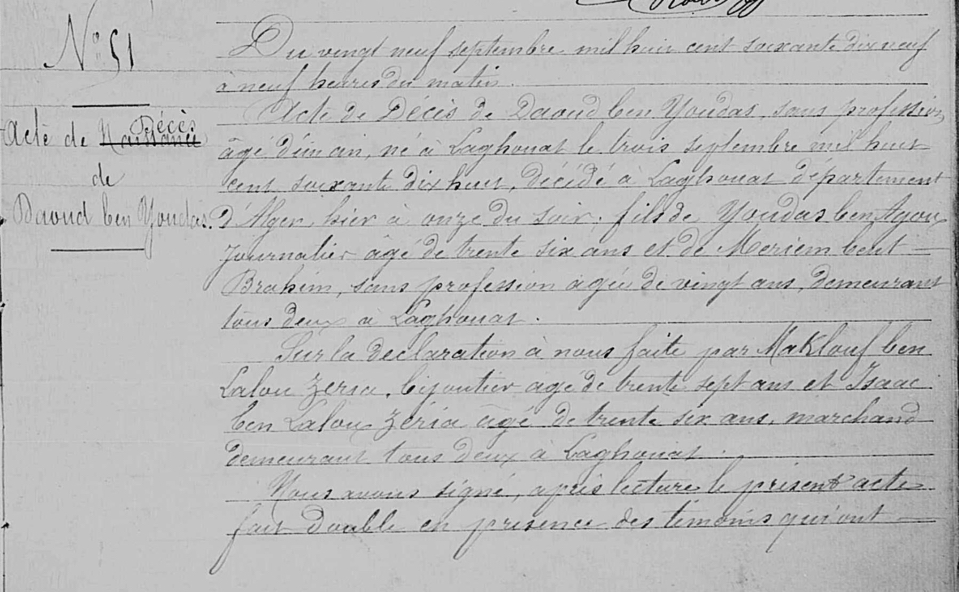 N° 51
Acte de Naissance Décès
de
Daoud ben Youdas.
Du vingt neuf septembre mil huit cent soixante dix neuf
à neuf heures du matin.
Acte de Décès de Daoud ben Youdas, sans profession,
âgé d'un an, né à Laghouat le trois septembre mil huit
cent soixante dix huit, décédé à Laghouat département
d'Alger, hier à onze du soir, fils de Youdas ben Agou
journalier âgé de trente six ans et de Meriem bent
Brahim, sans profession âgée de vingt ans, demeurant
tous deux à Laghouat.
Sur la déclaration à nous faite par Maklouf ben
Lalou Zeria, bijoutier âgé de trente sept ans et Isaac
ben Lalou Zeria âgé de trente six ans, marchand
demeurant tous deux à Laghouat.
Nous avons signé, après lecture le présent acte
fait double en présence des témoins qui ont